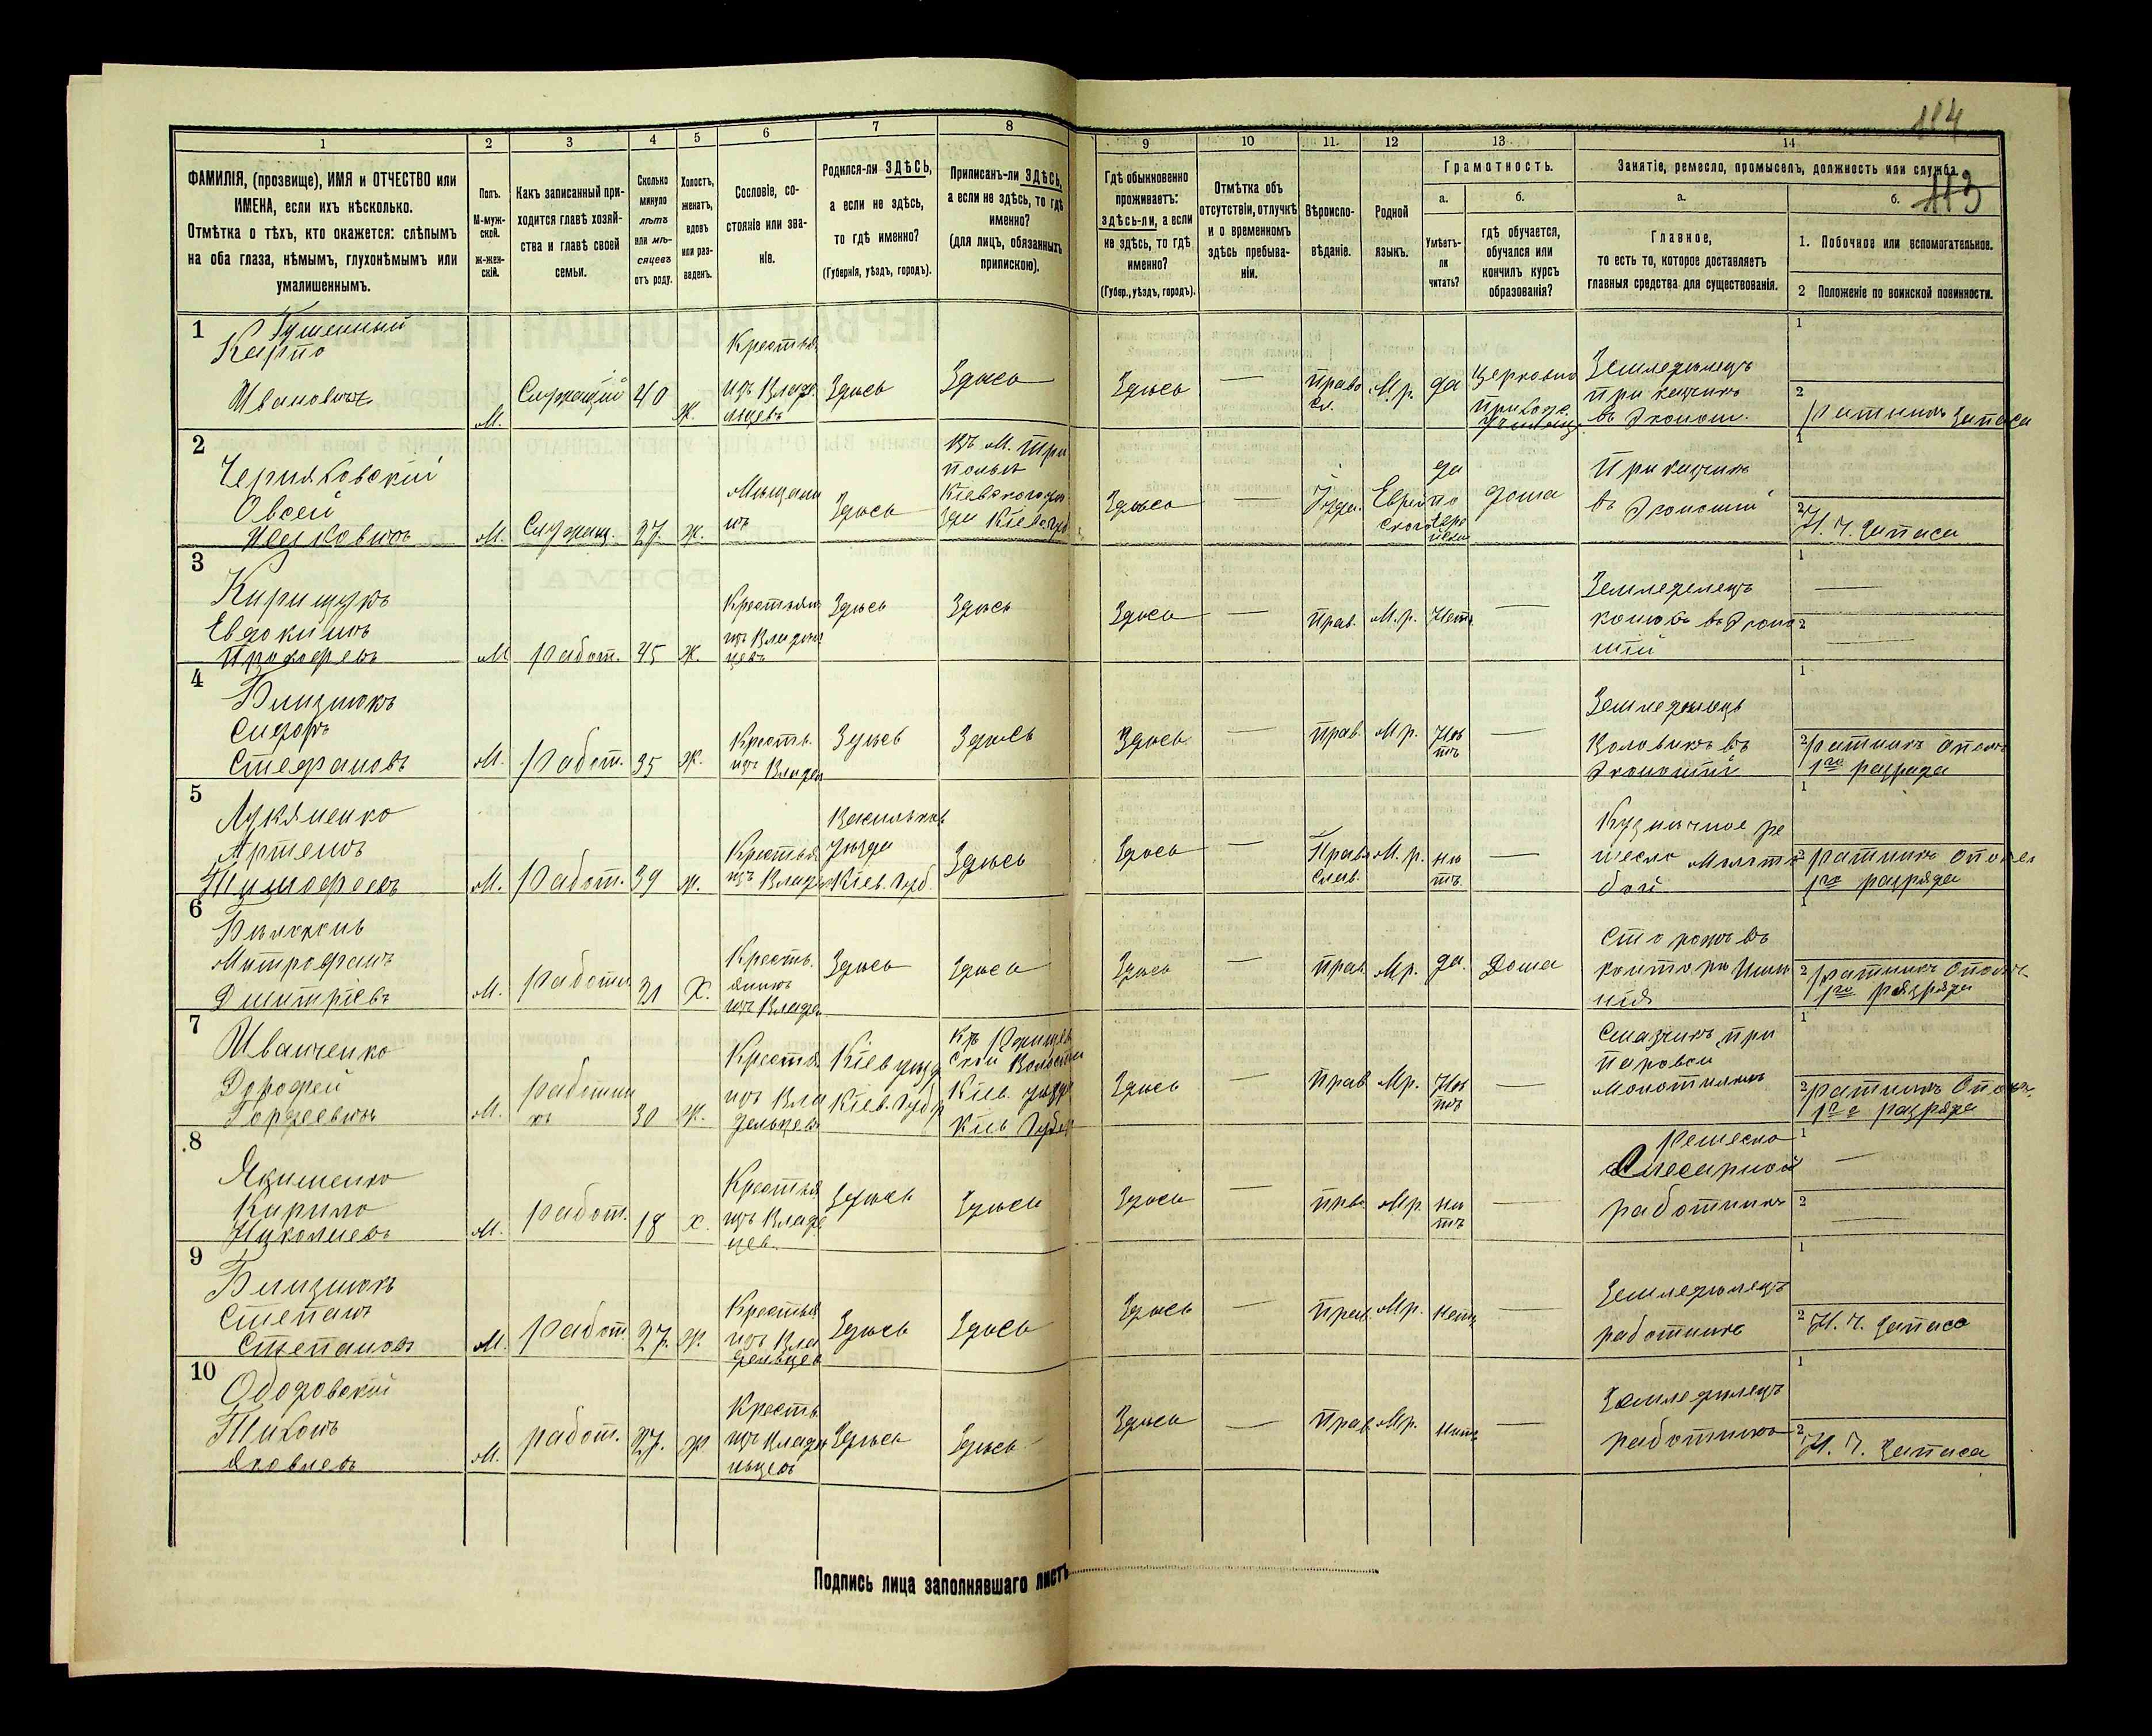 114
113
1 2 3 4 5 6 7 8 9 10 11. 12 13 14
ФАМИЛІЯ, (прозвище), ИМЯ и ОТЧЕСТВО или
ИМЕНА, если ихъ нѣсколько.
Отмѣтка о тѣхъ, кто окажется: слѣпымъ
на оба глаза, нѣмымъ, глухонѣмымъ или
умалишеннымъ.
Полъ.
М-муж-
ской.
ж-жен-
скій.
Какъ записанный при-
ходится главѣ хозяй-
ства и главѣ своей
семьи.
Сколько
минуло
лѣтъ
или мѣ-
сяцевъ
отъ роду.
Холостъ,
женатъ,
вдовъ
или раз-
веденъ.
Сословіе, со-
стояніе или зва-
ніе.
Родился-ли ЗДѢСЬ,
а если не здѣсь,
то гдѣ именно?
(Губернія, уѣздъ, городъ).
Приписанъ-ли ЗДѢСЬ,
а если не здѣсь, то гдѣ
именно?
(для лицъ, обязанныхъ
припискою).
Гдѣ обыкновенно
проживаетъ:
здѣсь-ли, а если
не здѣсь, то гдѣ
именно?
(Губер., уѣздъ, городъ).
Отмѣтка объ
отсутствіи, отлучкѣ
и о временномъ
здѣсь пребыва-
ніи.
Вѣроиспо-
вѣданіе.
Родной
языкъ.
Грамотность.
а.
Умѣетъ-
ли
читать?
б.
гдѣ обучается,
обучался или
кончилъ курсъ
образованія?
Занятіе, ремесло, промыселъ, должность или служба.
а.
Главное,
то есть то, которое доставляетъ
главныя средства для существованія.
б.
1. Побочное или вспомогательное.
2 Положеніе по воинской повинности.
1
Карпо
Ивановичъ
М.
Служащій
40
Ж.
Крестья
изъ Владѣ
льцевъ
Здѣсь
Здѣсь
Здѣсь
—
Право
сл.
М.р.
да
Церковно
Земледѣлецъ
прикащикъ
въ Эконом.
1
2
ратникъ запаса
2
Черняховскій
Овсей
М.
Служащ.
27.
Ж.
Мѣщани
нъ
Здѣсь
Къ М. Три
полья
Кіевского уѣ
зда Кіев. Губ
Здѣсь
—
Іуде.
Еврей
ского
да
по
дома
Прикащикъ
въ Экономіи
1
2
Н. Ч. запаса
3
Кирищукъ
Евдокимъ
Прокофьевъ
М
Работ.
45
Ж.
Крестьян
изъ Владѣль
цевъ
Здѣсь
Здѣсь
Здѣсь
—
Прав.
М.р.
Нетъ
—
Земледелецъ
конюхъ въ Эконо
міи
1
—
2
—
4
Близнюкъ
Сидоръ
Стефановъ
М.
Работ.
35
Ж.
Кресть.
изъ Владѣл
Здѣсь
Здѣсь
Здѣсь
—
Прав.
М.р.
Нѣ
тъ
—
Земледѣлецъ
Воловикъ въ
Экономіи
1
2
ратникъ Ополч
1го разряда
5
Лукяненко
Артемъ
Тимофеевъ
М.
Работ.
39
Ж.
Крестья
изъ Владѣл
Васильков
уѣзда
Кіев. Губ.
Здѣсь
Здѣсь
—
Право
слав.
М.р.
нѣ
тъ
—
Кузнечное ре
месло
1
2
ратникъ ополч
1го разряда
6
Митрофанъ
Дмитріевъ
М.
Работн
31
Х.
Кресть
янинъ
изъ Владѣл
Здѣсь
Здѣсь
Здѣсь
—
Прав
Мр.
да.
Дома
Сторожъ въ
конторѣ Имѣ
нія
1
2
ратникъ Ополч
1го разряда
7
Иванченко
Дорофей
Гордеевичъ
М.
Работни
къ
30
Ж.
Крестья
изъ Вла
дельцевъ
Кіев уезд
Кіев. Губер
Волости
Кіев. уѣзда
Кіев Губер
Здѣсь
—
Прав
Мр.
Нѣ
тъ
—
Смазчикъ при
паровой
молотилкѣ
1
2
ратникъ Ополч
1го разряда
8
Якименко
Кирило
Николаевъ
М.
Работ.
18
Х.
Крестья
изъ Владѣ
цев.
Здѣсь
Здѣсь
Здѣсь
—
Прав
Мр
нѣ
тъ
—
Ремесло
Слесарной
работникъ
1
—
2
—
9
Близнюкъ
Степанъ
Степановъ
М.
Работ
27.
Ж.
Крестья
изъ Вла
дельцев
Здѣсь
Здѣсь
Здѣсь
—
Прав.
Мр.
нетъ
—
Земледѣлецъ
работникъ
1
2
Н. Ч. запаса
10
Ободовскій
Тихонъ
Яковлевъ
М.
работ.
27.
Ж
Кресть.
изъ Владѣ
льцевъ
Здѣсь
Здѣсь
Здѣсь
—
Прав
Мр.
нетъ
—
Земледѣлецъ
работникъ
1
2
Н. Ч. Запаса
Подпись лица заполнявшаго листъ